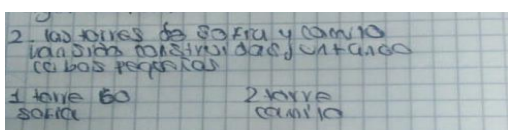 2. las torres de Sofía y camilo
han sido construidas juntando
cubos pequeños
1 torre 60 2 torre
sofia camilo